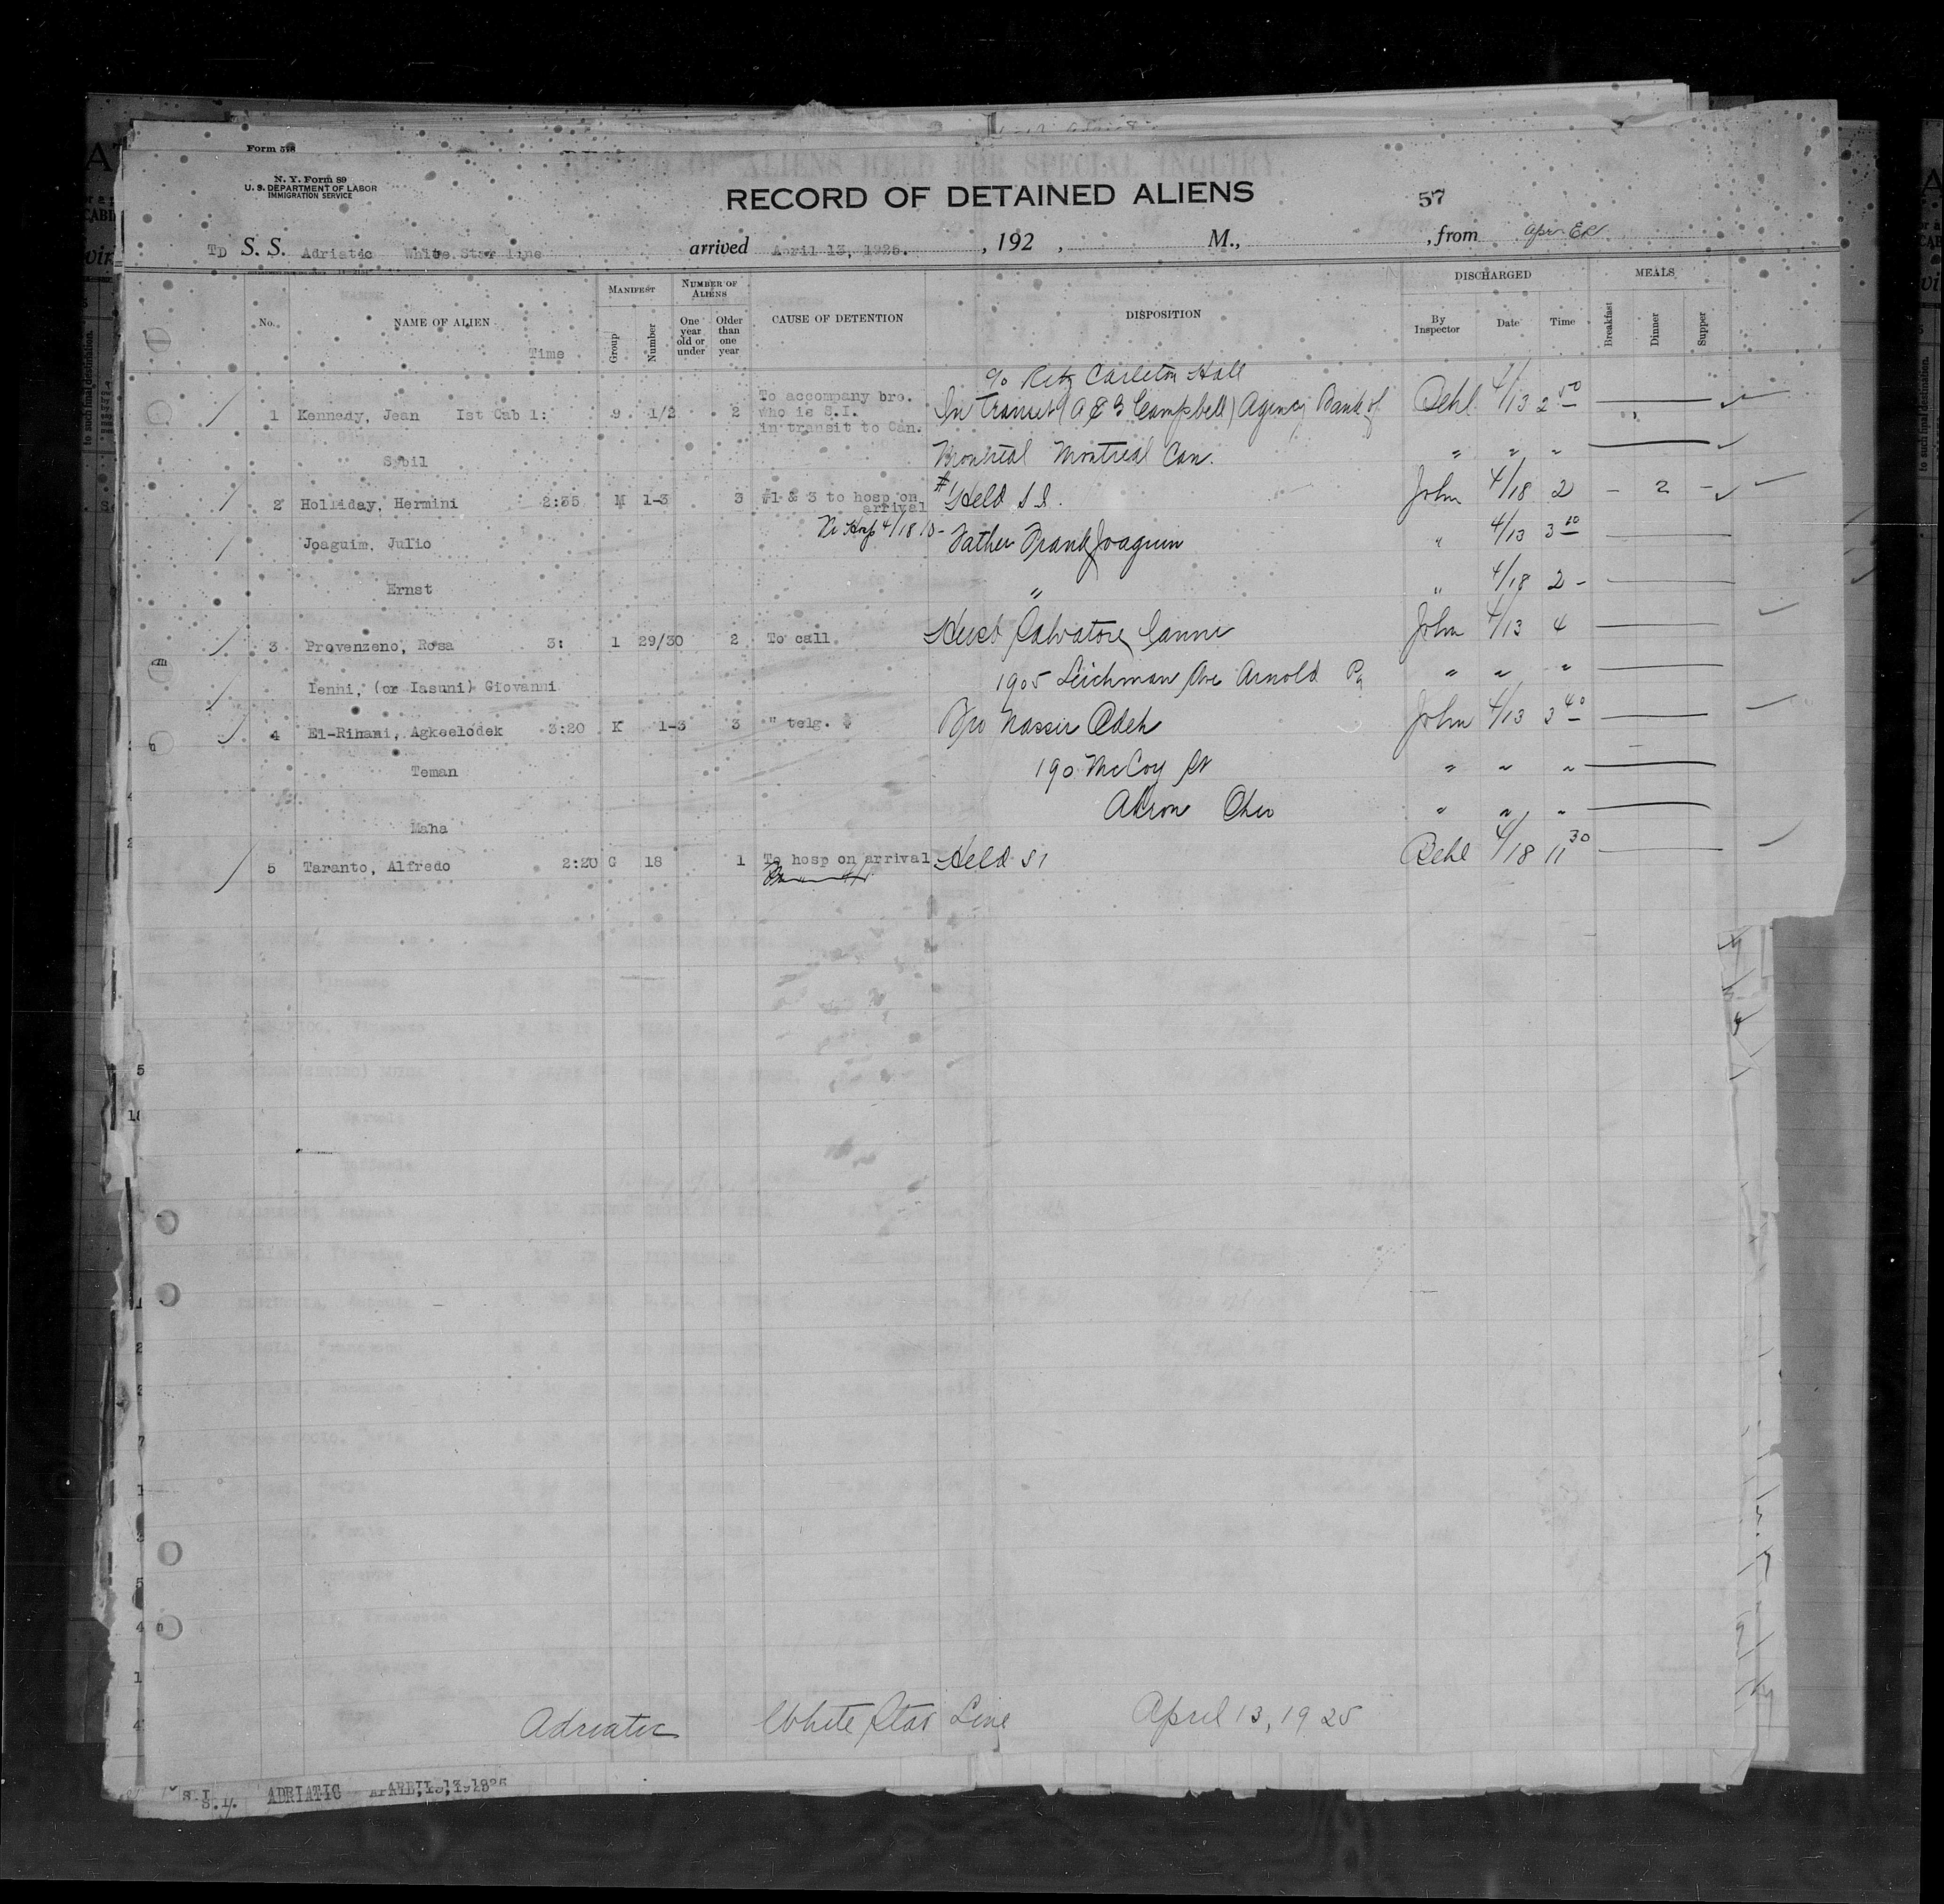 Form 518
N. Y. Form 89
U. S. DEPARTMENT OF LABOR
IMMIGRATION SERVICE
RECORD OF ALIENS HELD FOR SPECIAL INQUIRY.
RECORD OF DETAINED ALIENS
57
TD S. S. Adriatic White Star line arrived April 13, 1925. , 192 , M., , from
No. NAME OF ALIEN Time MANIFEST Group Number NUMBER OF ALIENS One year old or under Older than one year CAUSE OF DETENTION DISPOSITION DISCHARGED By Inspector Date Time MEALS Breakfast Dinner Supper
c/o Ritz Carleton Hall
1 Kennedy, Jean Ist Cab 1: 9 1/2 2 To accompany bro. who is S.I. in transit to Can. In Transit (A E G Campbell) Agency Bank of Behl 4/13 2 50
Sybil Montreal Montreal Can. " " "
2 Holliday, Hermini 2:35 M 1-3 3 #1 & 3 to hosp on arrival #1 Held S I. John 4/18 2 - 2 -
Joaguim, Julio Father Frank Joaquin " 4/13 3 10
Ernst " " 4/18 2 -
3 Provenzeno, Rosa 3: 1 29/30 2 To call Husb Salvatore John 4/13 4
Ienhi, (or Iasuni) Giovanni 1905 Leichman Ave Arnold Pa " " "
4 El-Rihani, Agkeelodek 3:20 K 1-3 3 " telg. Bro Nassir Odeh John 4/13 3 40
Teman 190 McCoy St " " "
Maha Akron Ohio " " "
5 Taranto, Alfredo 2:20 G 18 1 To hosp on arrival Held S I Behl 4/18 11 30
Adriatic White Star Line April 13, 1925
S.I. ADRIATIC APRIL 13, 1925